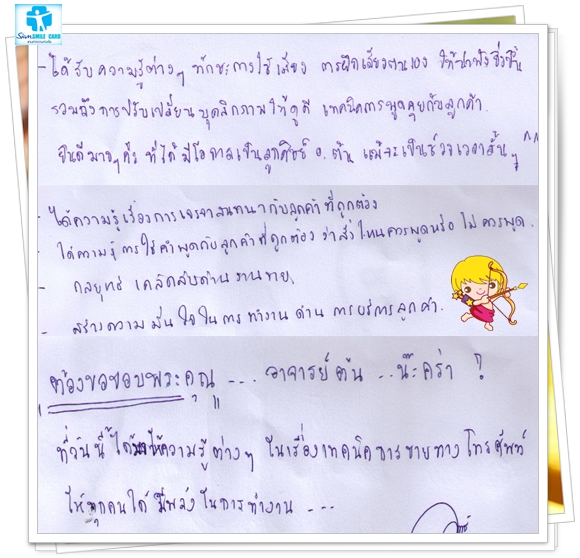 Siam SMILE CARD
- ได้รับความรู้ต่างๆ ทักษะการใช้เสียง การฝึกเสียงตนเอง ให้น่าฟังยิ่งขึ้น
รวมถึงการปรับเปลี่ยนบุคลิกภาพให้ดูดี เทคนิคการพูดคุยกับลูกค้า.
ยินดีมากๆค่ะ ที่ได้มีโอกาสเป็นลูกศิษย์ อ.ต้น แม้จะเป็นช่วงเวลาสั้นๆ ^^
- ได้ความรู้เรื่องการเจรจาสนทนากับลูกค้าที่ถูกต้อง
- ได้ความรู้การใช้คำพูดกับลูกค้าที่ถูกต้อง ว่าสิ่งไหนควรพูดหรือไม่ควรพูด.
- กลยุทธ์ เคล็ดลับด้านงานขาย.
- สร้างความมั่นใจในการทำงานด้านการบริการลูกค้า.
"ต้องขอขอบพระคุณ" --- อาจารย์ต้น ..น๊ะคร่า !
ที่วันนี้ได้ให้ความรู้ต่างๆ ในเรื่องเทคนิคการขายทางโทรศัพท์
ให้ทุกคนได้มีพลังในการทำงาน ---